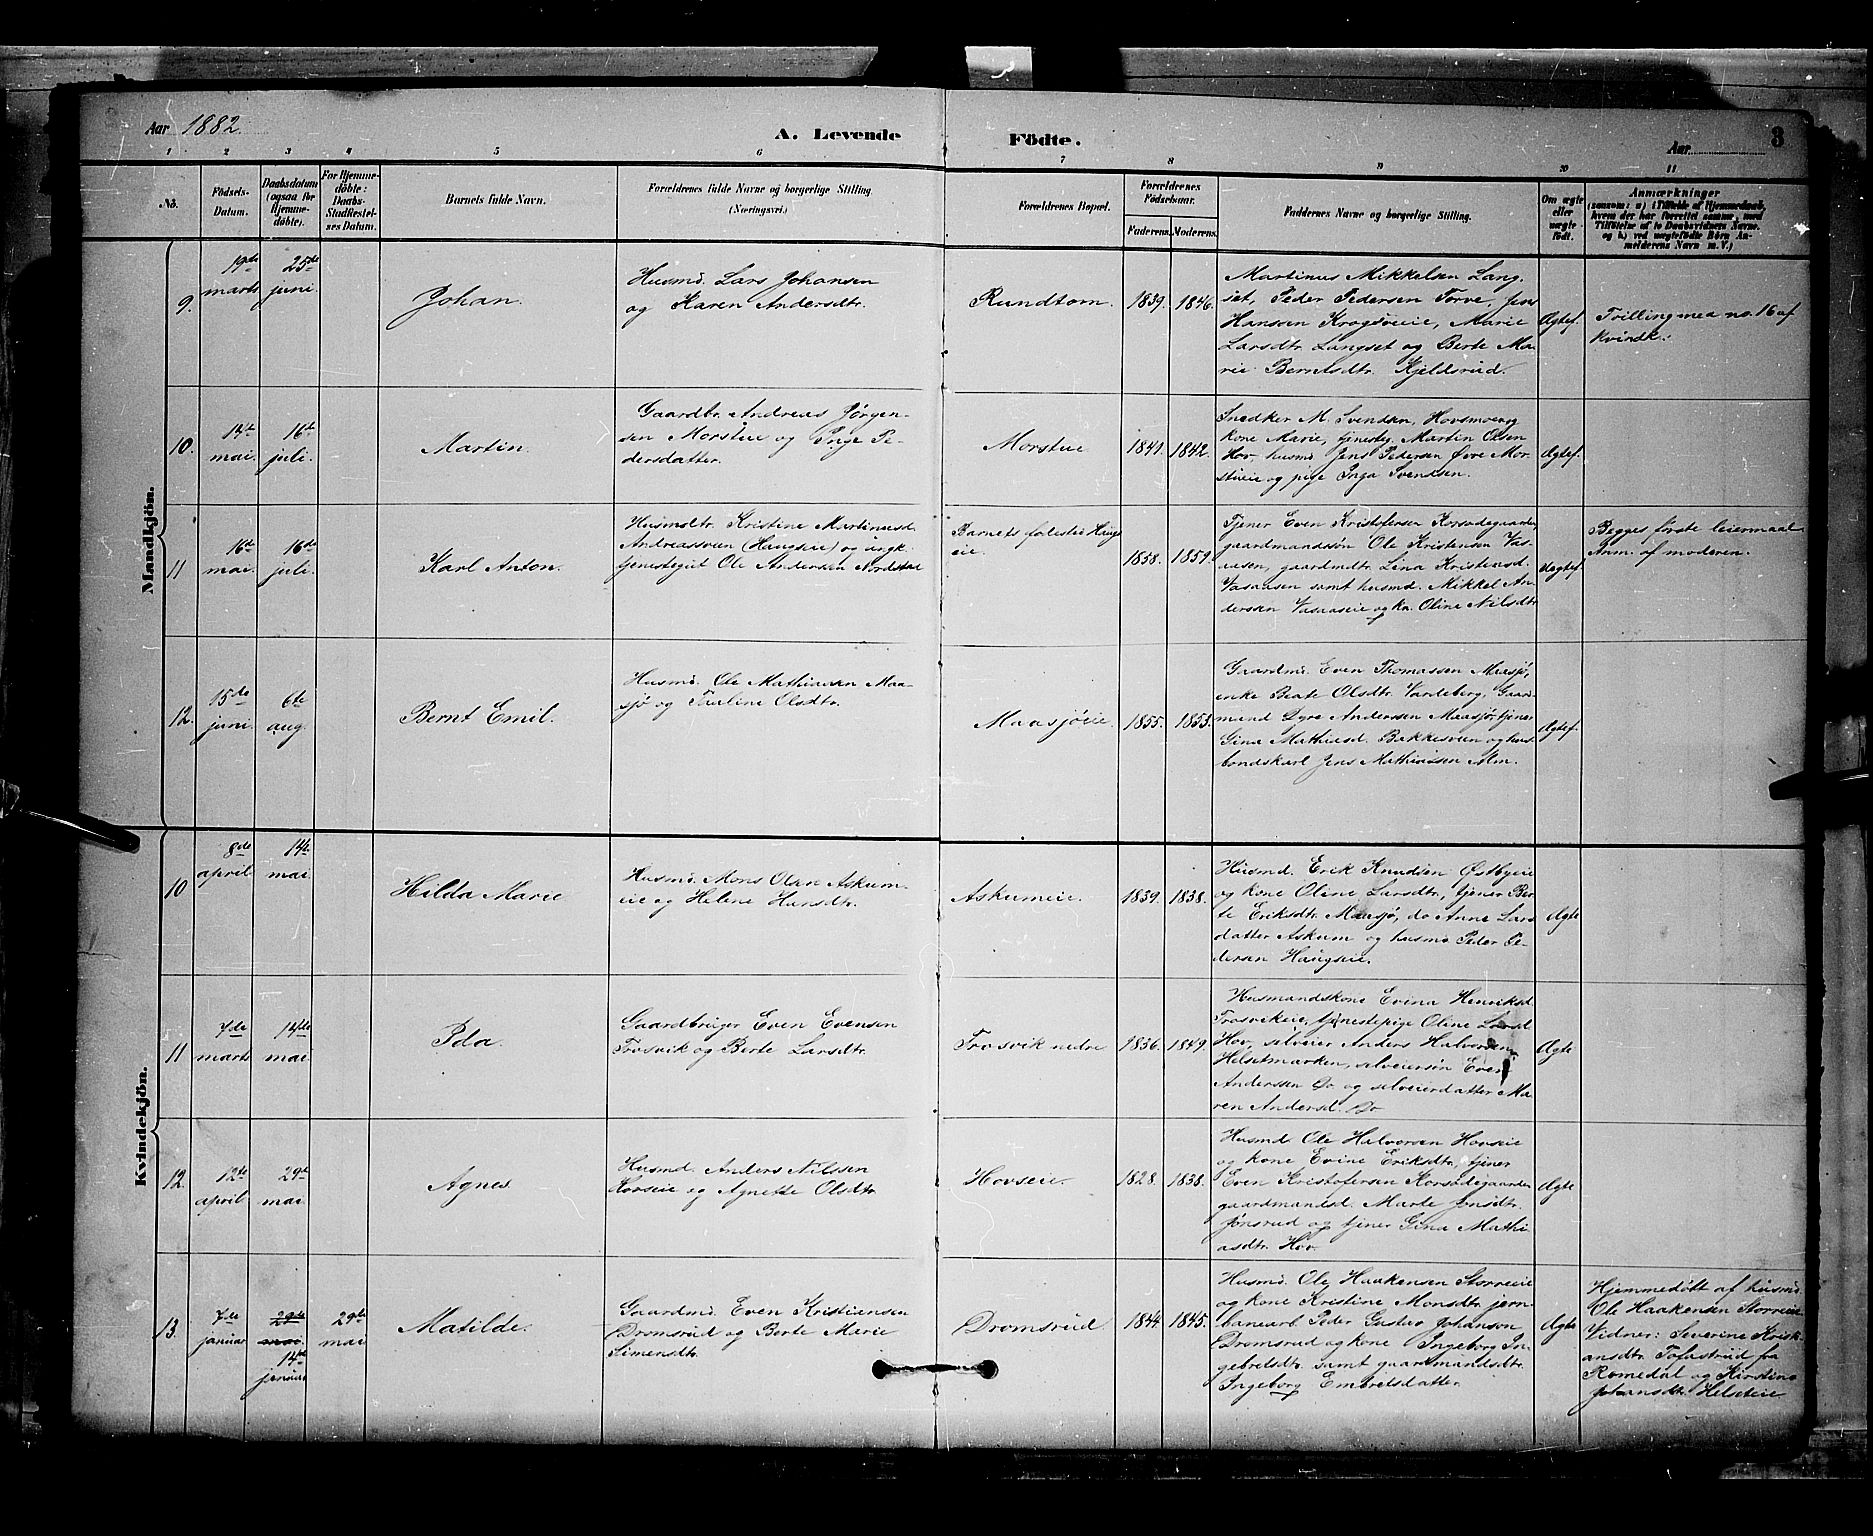 Aar 1882
A. Levende
Födte.
Aar
3
1 2 3 4 5 6 7 8 9 10 11
No.
Födsels-
Datum.
Daabsdatum
(ogsaa for
Hjemme-
döbte).
For Hjemme-
döbte:
Daabs-
Stadfæstel-
ses Datum.
Barnets fulde Navn.
Forældrenes fulde Navne og borgerlige Stilling
(Næringsvei.)
Forældrenes Bopæl.
Forældrenes
Födselsaar.
Faderens. Moderens.
Faddernes Navne og borgerlige Stilling.
Om ægte
eller
uægte
födt.
Anmærkninger
(saasom: a) i Tilfælde af Hjemmedaab,
hvem der har forrettet samme, med
Tilföielse af to Daabsvidners Navne.
og b) ved uægtefödte Börn An-
melderens Navn m. V.)
Mandkjön.
9.
19de
marts
25de
juni.
Johan.
Husmd. Lars Johansen
og Karen Andersdtr.
Rundtom.
1839. 1846.
Martinus Mikkelsen Lang-
set, Peder Pedersen Torve, Jens
Hansen Krogsveie, Marie
Larsdtr. Langset og Berte Ma-
rie Berntsdtr. Kjeldsrud.
Ægtef.
Tvilling med no. 16 af
kvindk.
10.
13de
mai.
16de
juli.
Martin.
Gaardbr. Andreas Jørgen-
sen Morstue og Inge Pe-
dersdatter.
Morstue
1841. 1842.
Snedker M. Svendsen, Hovsmoen og
kone Marie, tjenesteg. Martin Olsen
Hov, husmd. Jens Pedersen Øvre Mor-
stueie og pige Inga Svendsen.
Ægtef.
11
16de
mai.
16de
juli.
Karl Anton.
Husmdtr. Kristine Martinusd.
Andreassveen (Haugseie) og ungk.
tjenestegut Ole Andersen Nordstue
Barnets fødested Haugs
eie.
1858. 1859.
Tjener Even Kristofersen Korsødegaarden
gaardmandssøn Ole Kristensen Vas-
aasen, gaardmdtr. Lina Kristensd.
Vasaasen samt husmd. Mikkel An-
dersen Vasaaseie og kn. Oline Nilsdtr.
Uægtef.
Begges første leiermaal
Anm. af moderen.
12.
15de
juni.
6te
aug.
Bernt Emil.
Husmd. Ole Mathiasen Maa-
sjø og Pauline Olsdtr.
Maasjøeie.
1855. 1853.
Gaardmd. Even Thomassen Maasjø,
enke Beate Olsdtr. Varleberg, Gaard-
mand Dyre Andersen Maasjø, tjener
Gina Mathiasd. Bakkesveen og hus-
bondskarl Jens Mathiassen Mm.
Ægtef.
Kvindekjön.
10
8de
april.
14de
mai
Hilda Marie
Husmd. Mons Olsen Askum-
eie og Helene Hansdtr.
Askumeie.
1839. 1838.
Husmd. Erik Knudsen Østbyeie
og kone Oline Larsdtr, tjener Ber-
te Eriksdtr. Maasjø, do Anne Lars
datter Askum og husmd Peder Pe-
dersen Haugseie.
Ægte
11
7de
marts
14de
mai.
Ida.
Gaardbruger Even Evensen
Trosvik og Berte Larsdtr.
Trosvik nedre
1836. 1849.
Husmandskone Evina Henriksd
Trosvikeie, tjenestepige Oline Larsd
Hov, selveier Anders Halvorsen
Helsetmarken, selveiersøn Even
Anderssen Do og selveierdatter Ma-
ren Andersd. Do
Ægte
12.
12te
april.
29de
mai
Agnes
Husmd. Anders Nilssen
Hovseie og Agnette Olsdtr.
Hovseie.
1828. 1838.
Husmd. Ole Halvorsen Hovseie
og kone Evine Eriksdtr, tjener
Even Kristofersen Korsødegaarden
gaardmandsd. Marte Jonsdtr.
Jønsrud og tjener Gina Mathi-
asdtr. Hov.
Ægte
13.
7de
januar
29de
mai
14de
januar
29de
mai
Matilde.
Gaardmd. Even Kristiansen
Dromsrud og Berte Marie
Simensdtr.
Dromsrud
1844. 1845.
Husmd. Ole Haakensen Storreeie
og kone Kristine Monsdtr. jern-
banearb. Peder Gustav Johanson
Dromsrud og kone Ingeborg In-
gebretsdtr. samt gaardmandsdtr.
Ingeborg Embretsdatter.
Ægte
Hjemmedøbt af husmd.
Ole Haakensen Storreeie
Vidner: Severine Krist-
iansdtr. Tofastrud fra
Romedal og Kirstine
Johansdtr. Helseteie